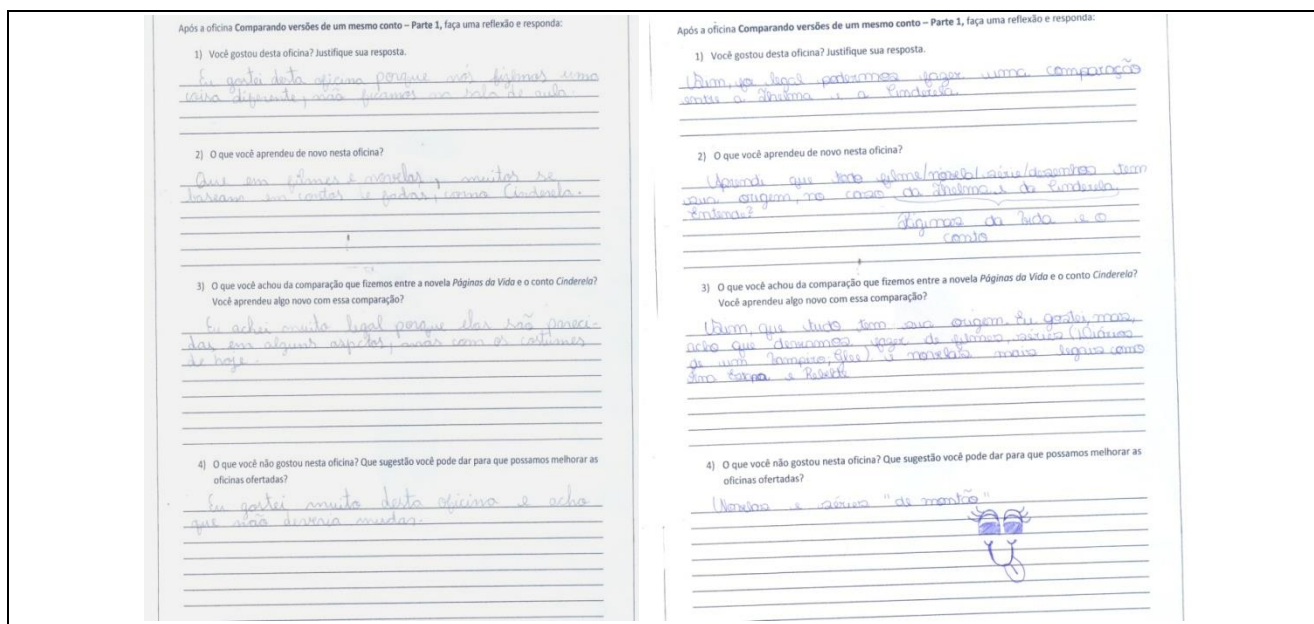 Após a oficina Comparando versões de um mesmo conto – Parte 1, faça uma reflexão e responda:
1) Você gostou desta oficina? Justifique sua resposta.
Eu gostei desta oficina porque nós fizemos uma
coisa diferente, não ficamos na sala de aula.
2) O que você aprendeu de novo nesta oficina?
Que em filmes e novelas, muitos se
baseam em contos e fadas, como Cinderela.
3) O que você achou da comparação que fizemos entre a novela Páginas da Vida e o conto Cinderela?
Você aprendeu algo novo com essa comparação?
Eu achei muito legal porque elas são pareci-
das em alguns aspectos, mas com os costumes
de hoje.
4) O que você não gostou nesta oficina? Que sugestão você pode dar para que possamos melhorar as
oficinas ofertadas?
Eu gostei muito desta oficina e acho
que não deveria mudar.
Após a oficina Comparando versões de um mesmo conto – Parte 1, faça uma reflexão e responda:
1) Você gostou desta oficina? Justifique sua resposta.
Sim, foi legal podermos fazer uma comparação
entre a Thelma e a Cinderela.
2) O que você aprendeu de novo nesta oficina?
Aprendi que todo filme/novela/série/desenhos tem
sua origem, no caso da Thelma e da Cinderela,
Entende?
Páginas da Vida e o
conto
3) O que você achou da comparação que fizemos entre a novela Páginas da Vida e o conto Cinderela?
Você aprendeu algo novo com essa comparação?
Sim, que tudo tem sua origem. Eu gostei, mas,
acho que deveríamos fazer de filmes, séries (Diários
de um Vampiro, Glee) e novelas mais legais como
Fina Estampa e Rebelde
4) O que você não gostou nesta oficina? Que sugestão você pode dar para que possamos melhorar as
oficinas ofertadas?
Novelas e séries "de montão"